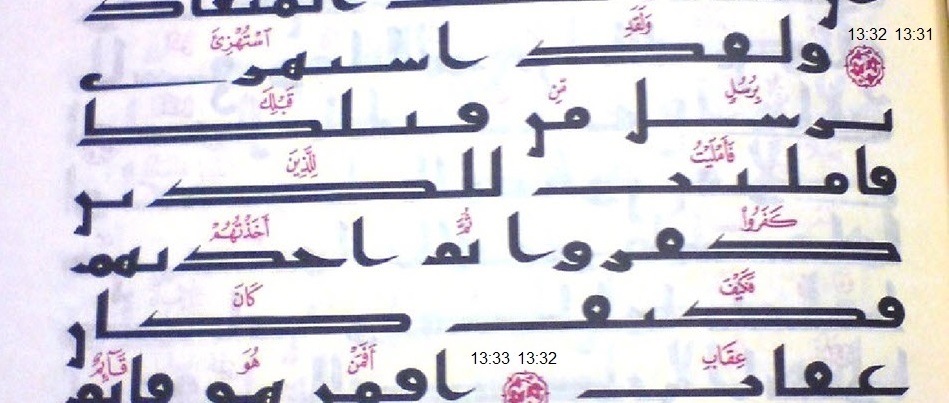 الميعاد
وَلَقَدِ ٱسْتُهْزِئَ
13:32 13:31
ولقد استهزى
بِرُسُلٍ مِّن قَبْلِكَ
برسل من قبلك ا
فَأَمْلَيْتُ لِلَّذِينَ
فامليت للذين
كَفَرُوا۟ ثُمَّ أَخَذْتُهُمْ
كفروا ثم اخذتهم
فَكَيْفَ كَانَ
فكيف كان
عِقَابِ أَفَمَنْ هُوَ قَآئِمٌ
عقاب 13:33 13:32 افمن هو قائم